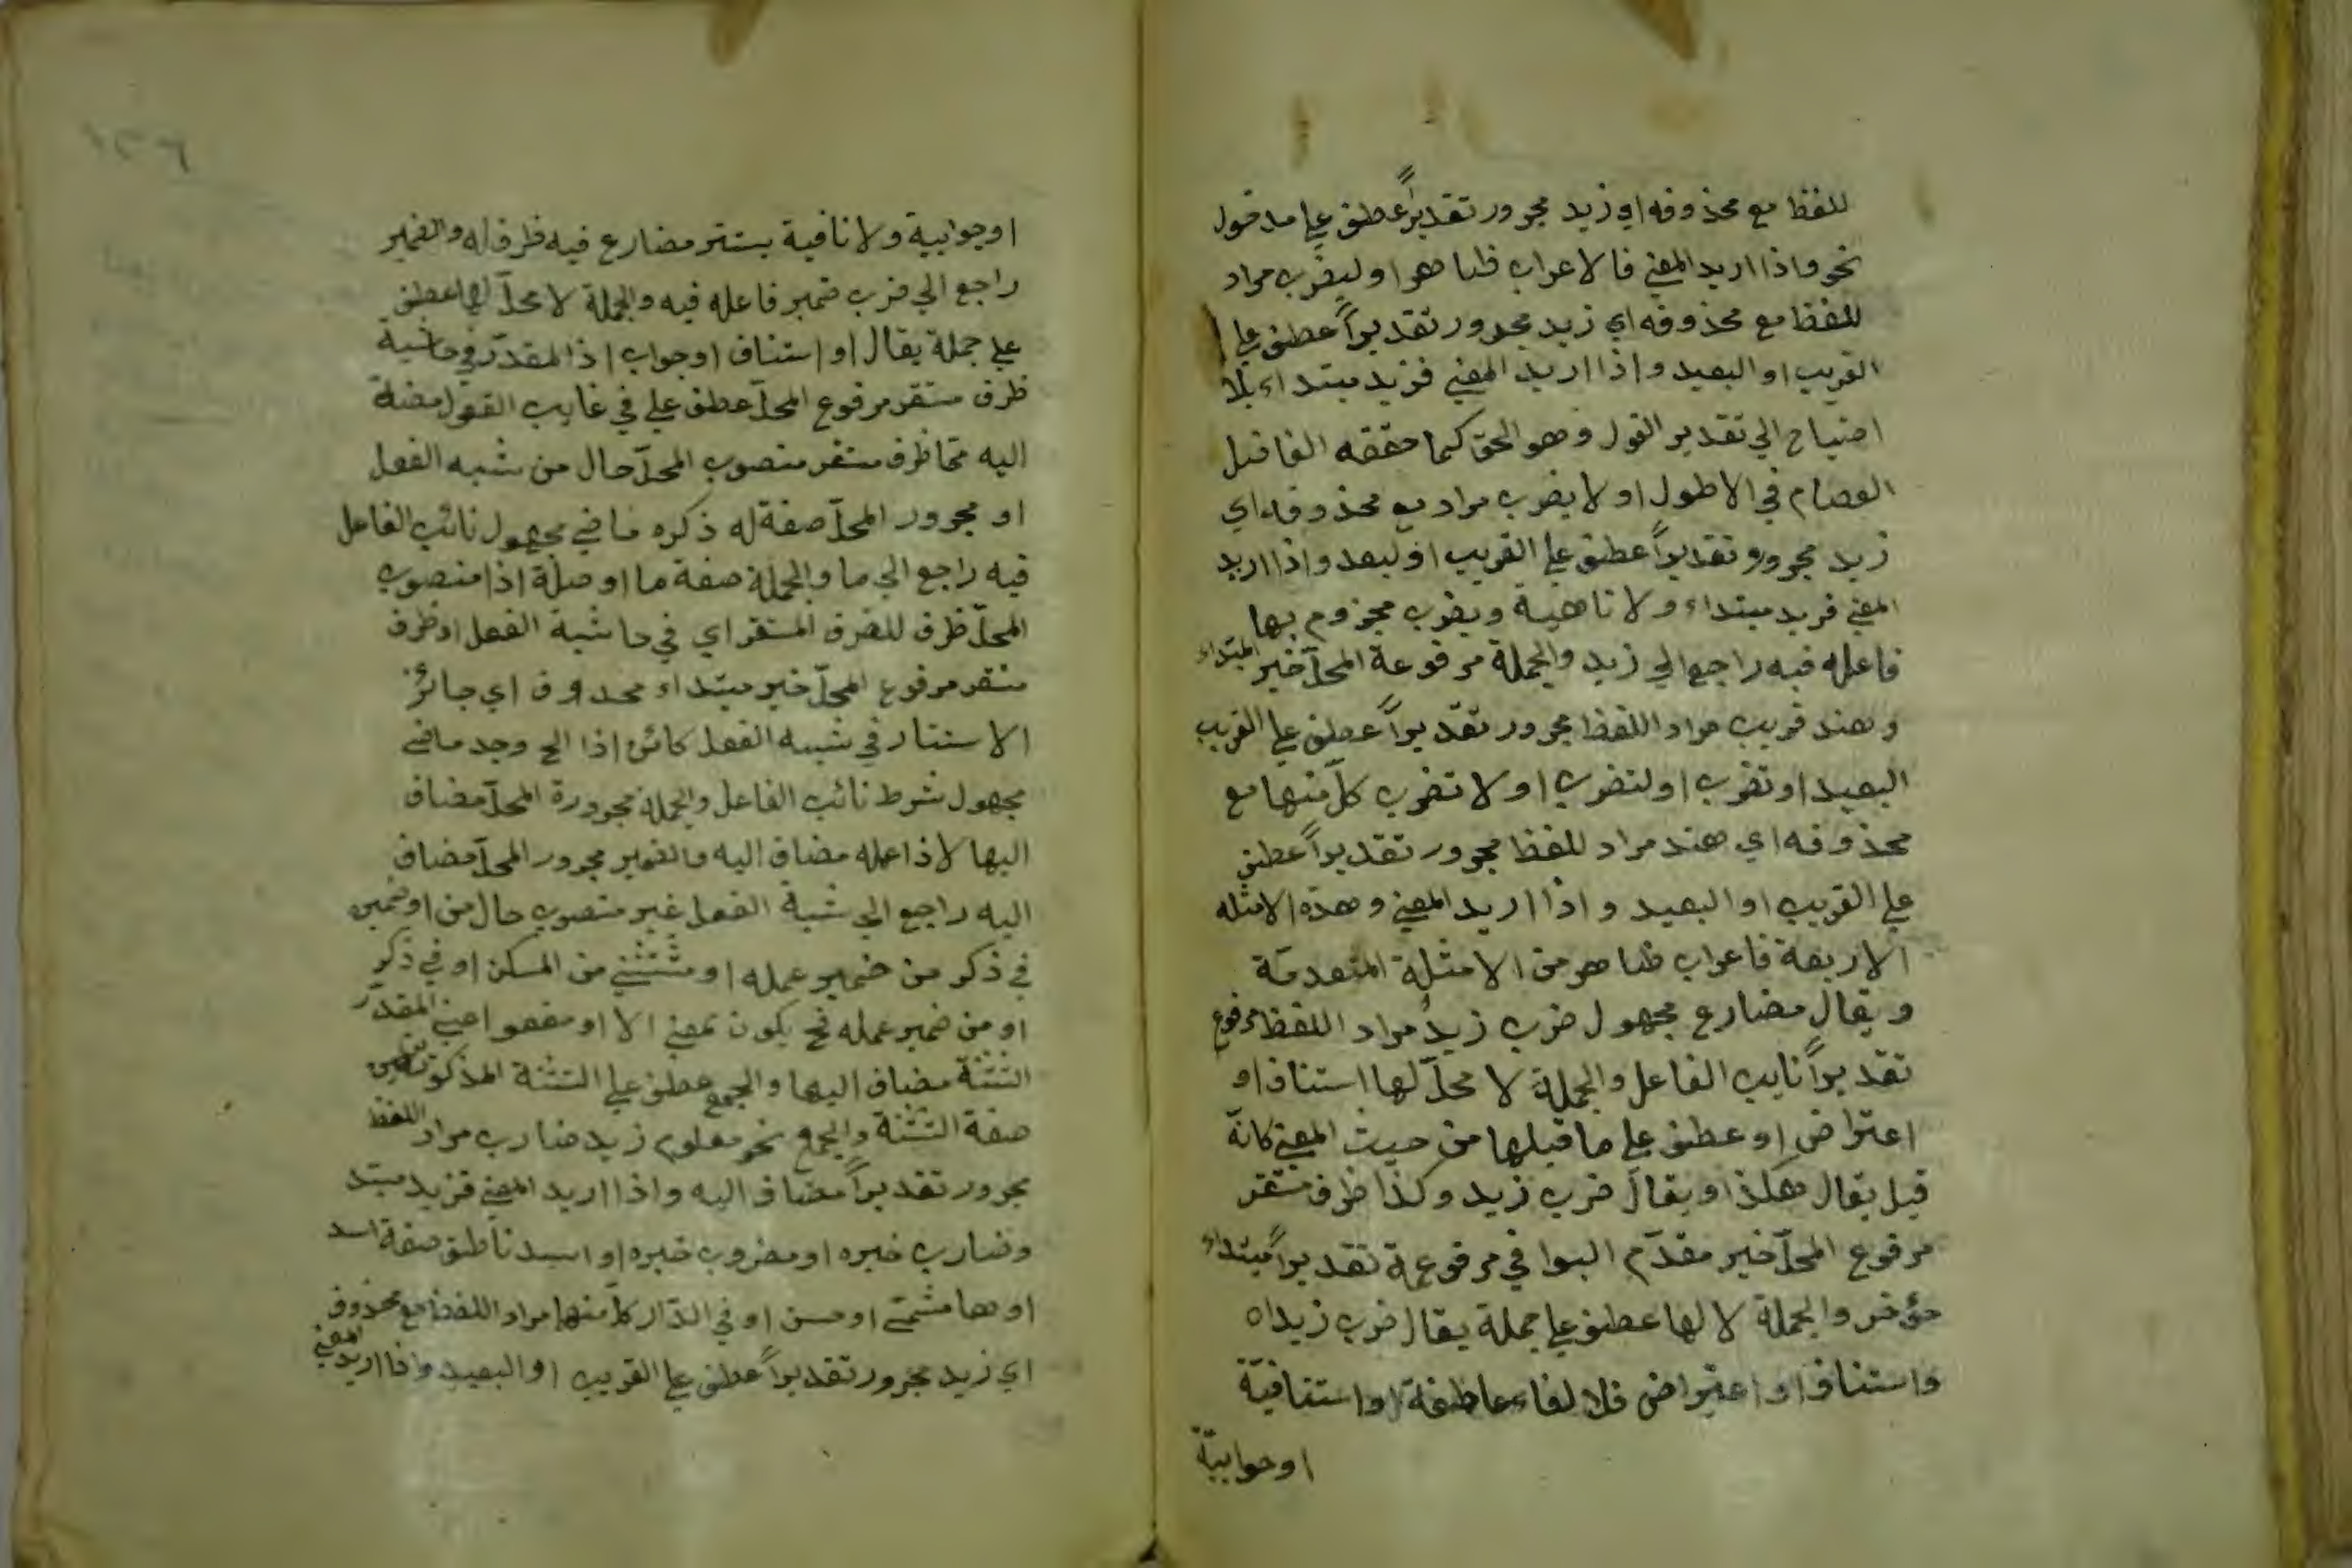 للفظ مع محذوفه اي زيد مجرور تقديراً عطف علي مدخول
نحو واذا اريد المعني فالاعراب ظاهر او ليضرب مراد
اللفظ مع محذوفه اي زيد مجرور تقديراً عطف علي
القريب او البعيد واذا اريد المعني فزيد مبتداء بلا
احتياج الي تقدير القول وهو الحق كما حققه الفاضل
العصام في الاطول او لا يضرب مراد مع محذوفه اي
زيد مجرور تقديراً عطف علي القريب او البعد واذا اريد
المعني فزيد مبتداء ولا ناهية ويضرب مجزوم بها
فاعله فيه راجع الي زيد والجملة مرفوعة المحلّ خبر المبتداء
وهند قريب مراد اللفظ مجرور تقديراً عطف علي القريب
البعيد او تضرب او لتضرب او لا تضرب كلّ منها مع
محذوفه اي هند مراد للفظ مجرور تقديراً عطف
علي القريب او البعيد واذا اريد المعني وهذه الامثله
الاربعة فاعراب ظاهر من الامثلة المتقدمة
ويقال مضارع مجهول ضرب زيدٌ مراد اللفظ مرفوع
تقديراً نايب الفاعل والجملة لا محلّ لها استناف او
اعتراض او عطف علي ما قبلها من حيث المعني كانه
قيل يقال هكذا ويقال ضرب زيد وكذا ظرف مستقر
مرفوع المحلّ خبر مقدّم البوا في مرفوعة تقديراً مبتداء
مؤخر والجملة لا لها عطف علي جملة يقال ضرب زيداه
واستناف او اعتراض فلا الفاء عاطفة او استنافيّة
اوجوابيّة
اوجوابية ولا نافية يستتر مضارع فيه ظرف له والضمير
راجع الي ضرب ضمير فاعله فيه والجملة لا محلّ لها عطف
علي جملة يقال او استناف اوجواب اذا المقدّر في حاشية
ظرف مستقر مرفوع المحلّ عطف علي في غايب القول مضنة
اليه مما ظرف مستقر منصوب المحلّ حال من شبه الفعل
او مجرور المحلّ صفة له ذكره ماضي مجهول نائب الفاعل
فيه راجع الي ما والجملة صفة ما او صلة اذا منصوب
المحلّ ظرف للضرف المستقر اي في حاشية الفعل او ظرف
مستقر مرفوع المحلّ خبر مبتداء محذوف اي جائز
الاستتار في شبه الفعل كائن اذا الح وجد ماضي
مجهول شرط نائب الفاعل والجملة مجرورة المحلّ مضاف
اليها لاذا عمله مضاف اليه والضمير مجرور المحلّ مضاف
اليه راجع الي شبة الفعل غير منصوب حال من او ضمير
في ذكر من ضمير عمله او مستثني من المسكن او في ذكر
او من ضمير عمله نح يكون بمعني الا او مفعو اعني المقدّر
التثنة مضاف اليها والجمع عطف علي التثنة المذكورتين
صفة التثنة والجمع نحو معلوم زيد ضارب مراد اللفظ
مجرور تقديراً مضاف اليه واذا اريد المعني فزيد مبتد
وضارب خبره او مضروب خبره او اسد ناطق صفة اسد
او حسن او في الدّار كلّ منها مراد اللفظ مع محذوف
اي زيد مجرور تقديراً عطف علي القريب او البعيد واذا اريد المعني